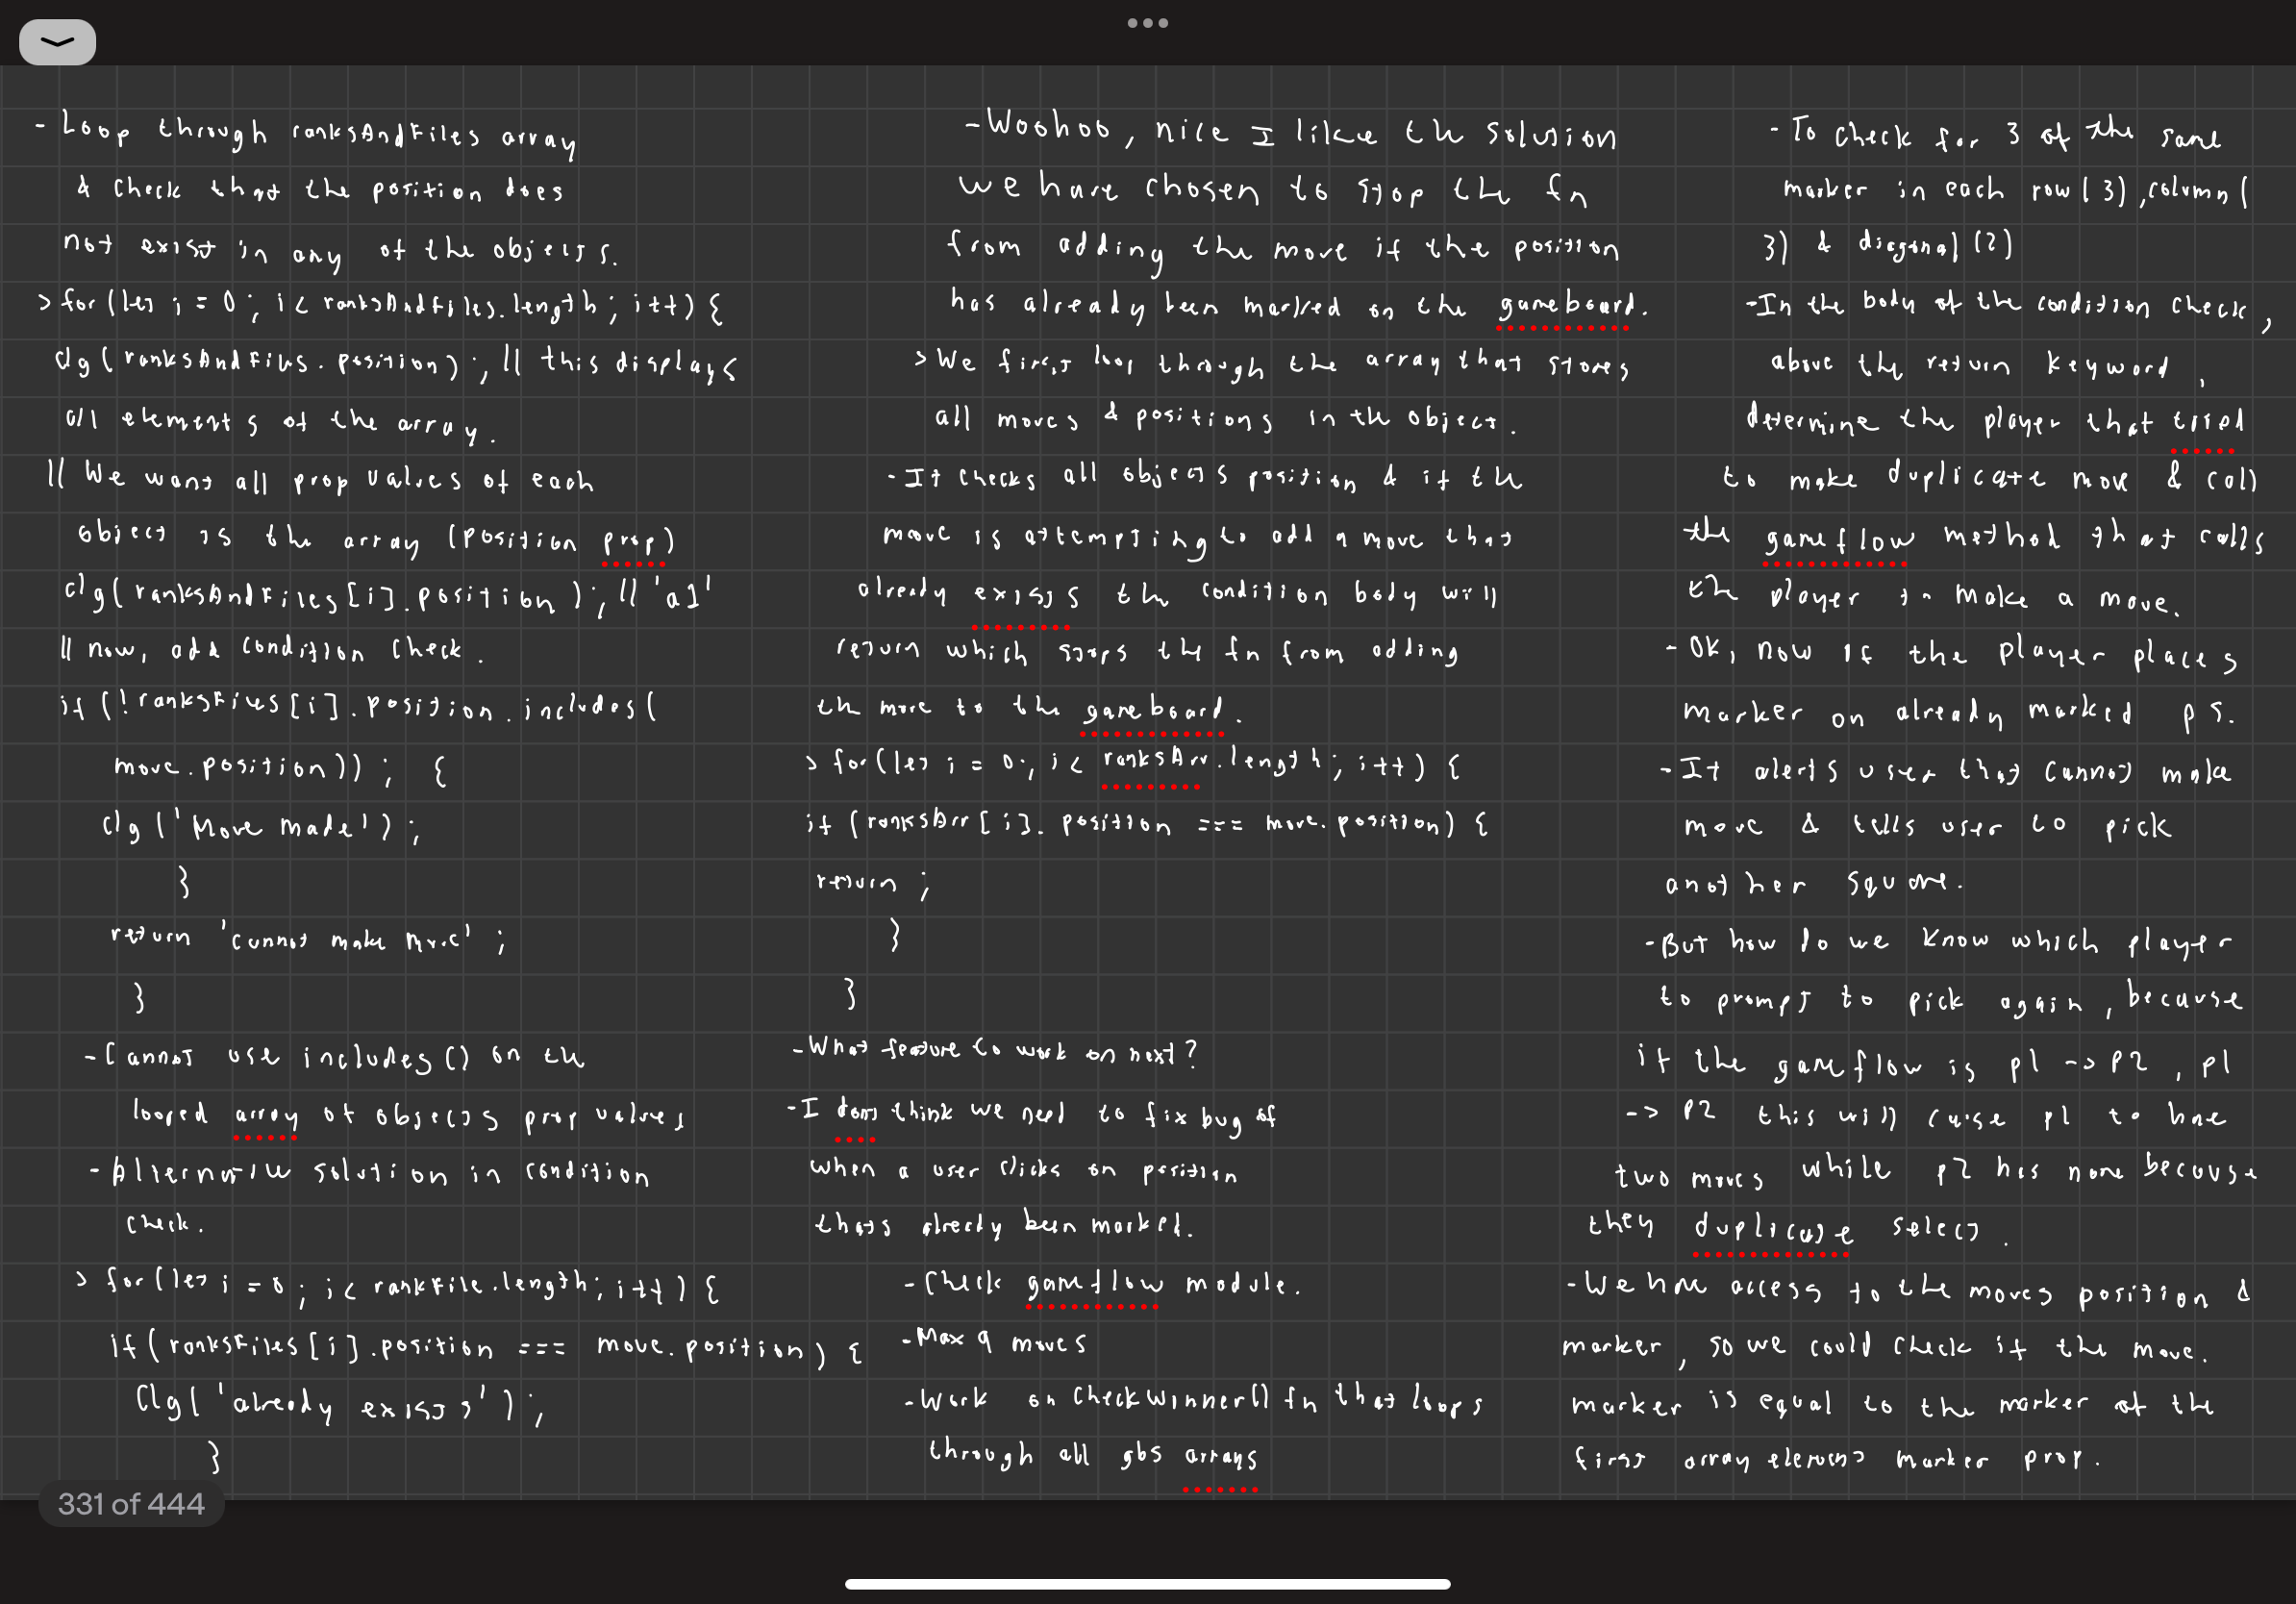 - Loop through ranksAndFiles array
& check that the position does
not exist in any of the objects.
> for(let i = 0; i < ranksAndFiles.length; i++) {
clg(ranksAndFiles.position); // this displays
all elements of the array.
// We want all prop values of each
object is the array (position prop)
clg(ranksAndFiles[i].position); // 'a1'
// now, add condition check.
if (!ranksFiles[i].position.includes(
move.position)); {
clg('Move made');
}
return 'cannot make move';
}
- Cannot use includes() on the
looped array of objects prop values
- Alternative solution in condition
check.
> for(let i = 0; i < rankFile.length; i++) {
if(ranksFiles[i].position === move.position) {
Clg('already exists');
}
- Woohoo, nice I like th solution
we have chosen to stop the fn
from adding the move if the position
has already been marked on the gameboard.
> We first loop through the array that stores
all moves & positions in the object.
- It checks all objects position & if th
move is attempting to add a move that
already exists the condition body will
return which stops the fn from adding
th move to the gameboard.
> for(let i = 0; i < ranksArr.length; i++) {
if (ranksArr[i].position === move.position) {
return;
}
}
- What feature to work on next?
- I dont think we need to fix bug of
when a user clicks on position
thats already been marked.
- Check gameflow module.
- Max 9 moves
- Work on checkWinner() fn that loops
through all gbs arrays
- To check for 3 of the same
marker in each row(3), column(
3) & diagonal (2)
- In the body of the condition check,
above the return keyword,
determine the player that tried
to make duplicate move & call
the gameflow method that calls
the player to make a move.
- OK, now if the player places
marker on already marked ps.
- It alerts user that cannot make
move & tells user to pick
another square.
- But how do we know which player
to prompt to pick again, because
if the gameflow is p1 -> P2, p1
-> P2 this will cause p1 to have
two moves while p2 has none because
they duplicate select.
- We have access to the moves position &
marker, so we could check if the move.
marker is equal to the marker of the
first array element marker prop.
331 of 444